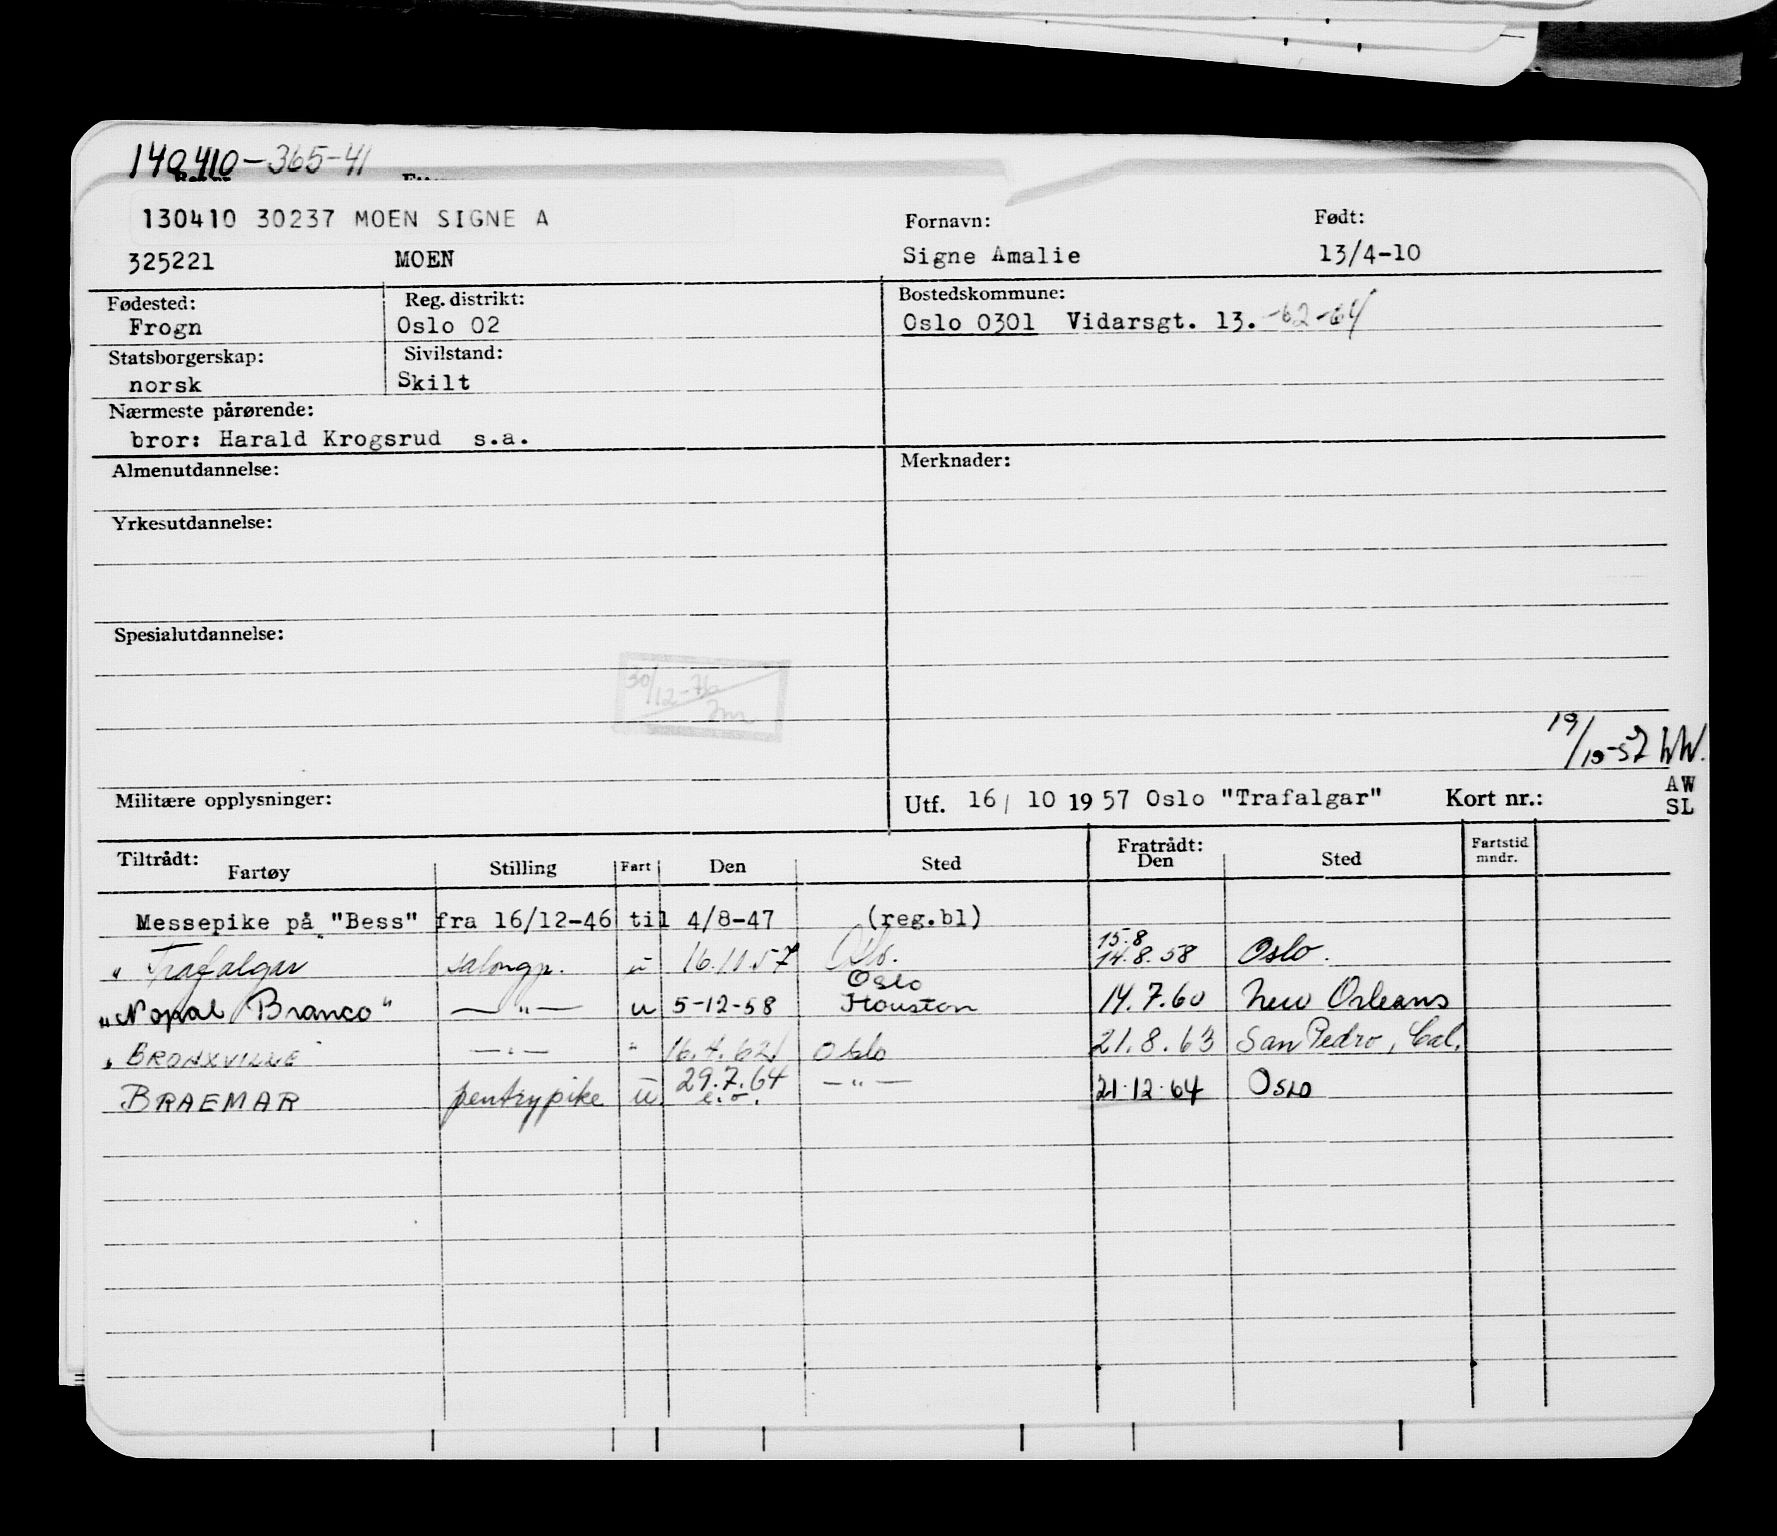 140410-365-41
130410 30237 MOEN SIGNE A
Fornavn: Født:
325221 MOEN Signe Amalie 13/4-10
Fødested: Reg. distrikt: Bostedskommune:
Frogn Oslo 02 Oslo 0301 Vidarsgt. 13. -62-64
Statsborgerskap: Sivilstand:
norsk Skilt
Nærmeste pårørende:
bror: Harald Krogsrud s.a.
Almenutdannelse: Merknader:
Yrkesutdannelse:
Spesialutdannelse:
30/12-76
19/10-57 WW.
AW
Militære opplysninger: Utf. 16/ 10 1957 Oslo "Trafalgar" Kort nr.: SL
Tiltrådt: Fratrådt:
Fartøy Stilling Fart Den Sted Den Sted Fartstid mndr.
Messepike på "Bess" fra 16/12-46 til 4/8-47 (reg.bl)
15.8
" Trafalgar salongp. u 16.10.57 Oslo. 14.8.58 Oslo.
Oslo
"Nopal Branco" —"— u 5-12-58 Houston 14.7.60 New Orleans
" BRONXVILLE —"— " 16.4.62 Oslo 21.8.63 San Pedro, Cal.
29.7.64
BRAEMAR pentrypike u. e.o. —"— 21.12.64 Oslo